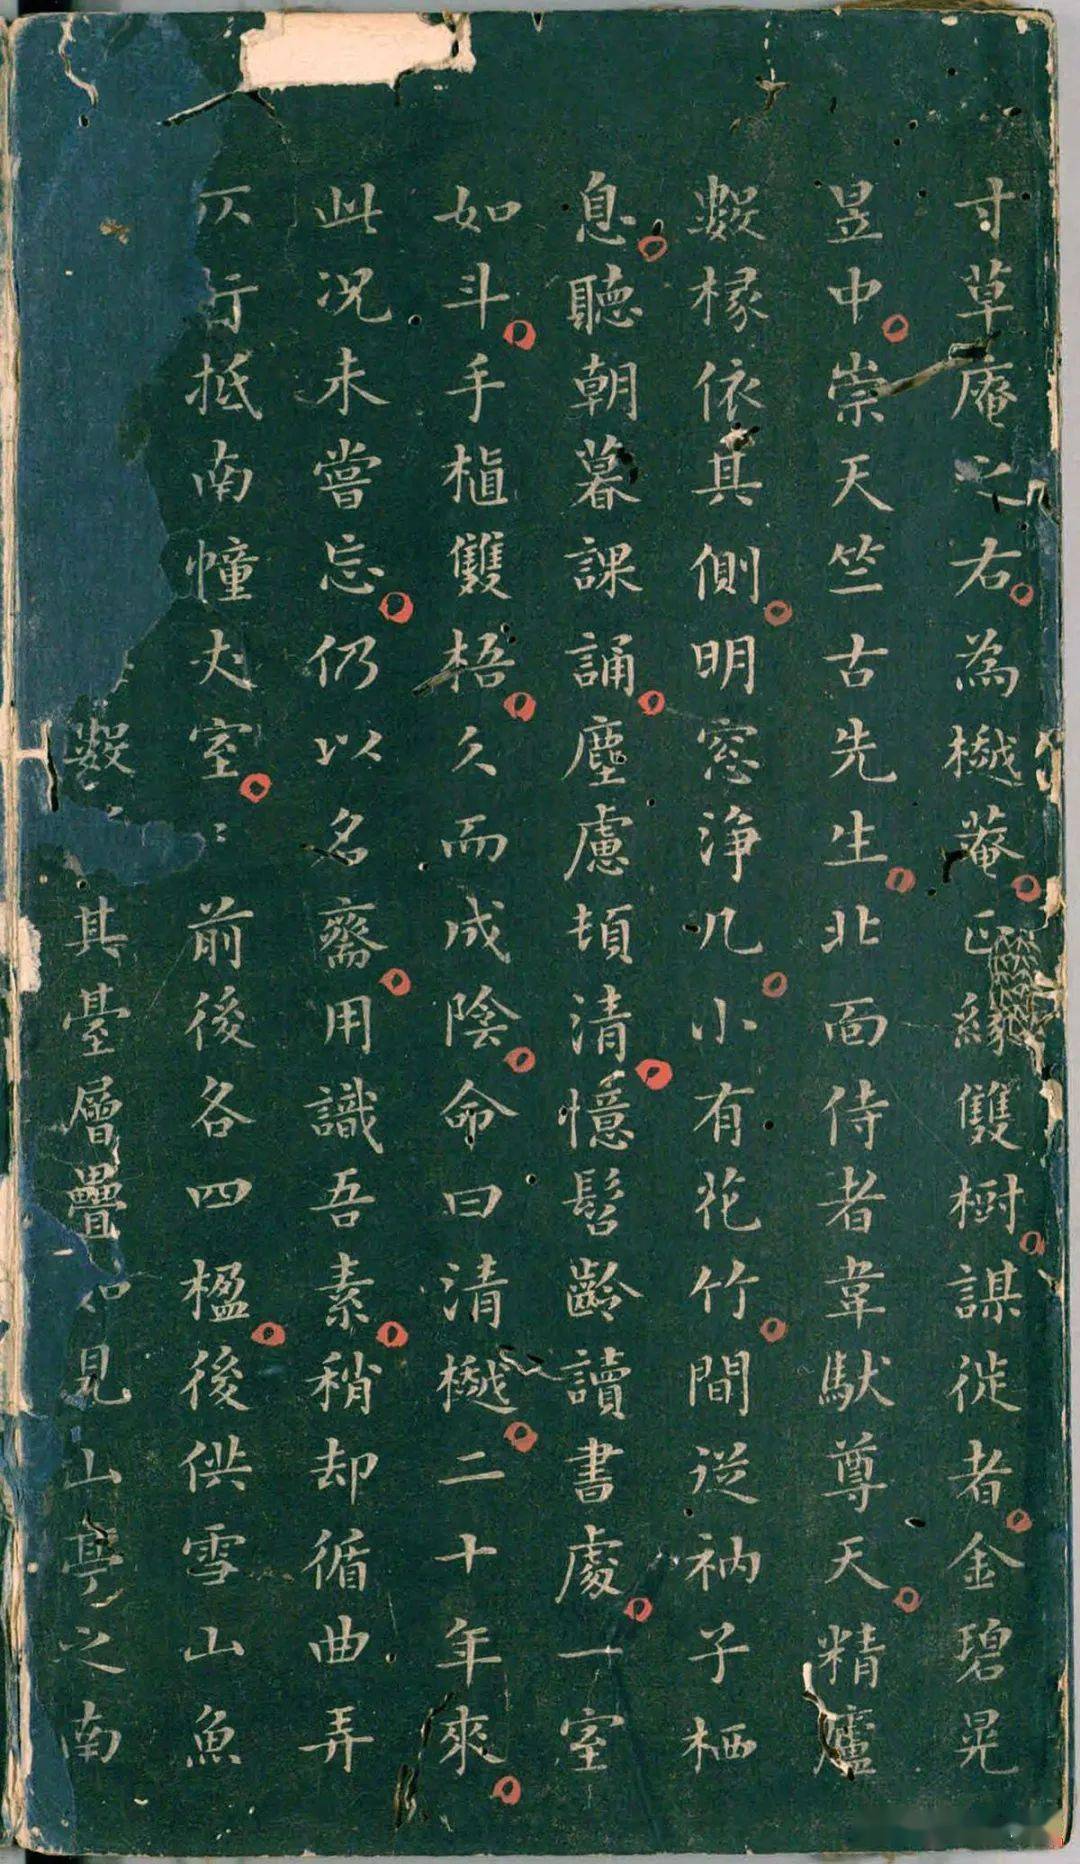 寸草庵之右為樾菴正緣雙樹謀徙者金碧晃
昱中崇天竺古先生北面侍者韋馱尊天精廬
數椽依其側明窓淨几小有花竹間從衲子栖
息聽朝暮課誦塵慮頓清憶髫齡讀書處一室
如斗手植雙梧久而成陰命曰清樾二十年來
此況未嘗忘仍以名齋用識吾素稍却循曲弄
抵南幢丈室前後各四楹後供雪山魚
數其臺層疊見山亭之南